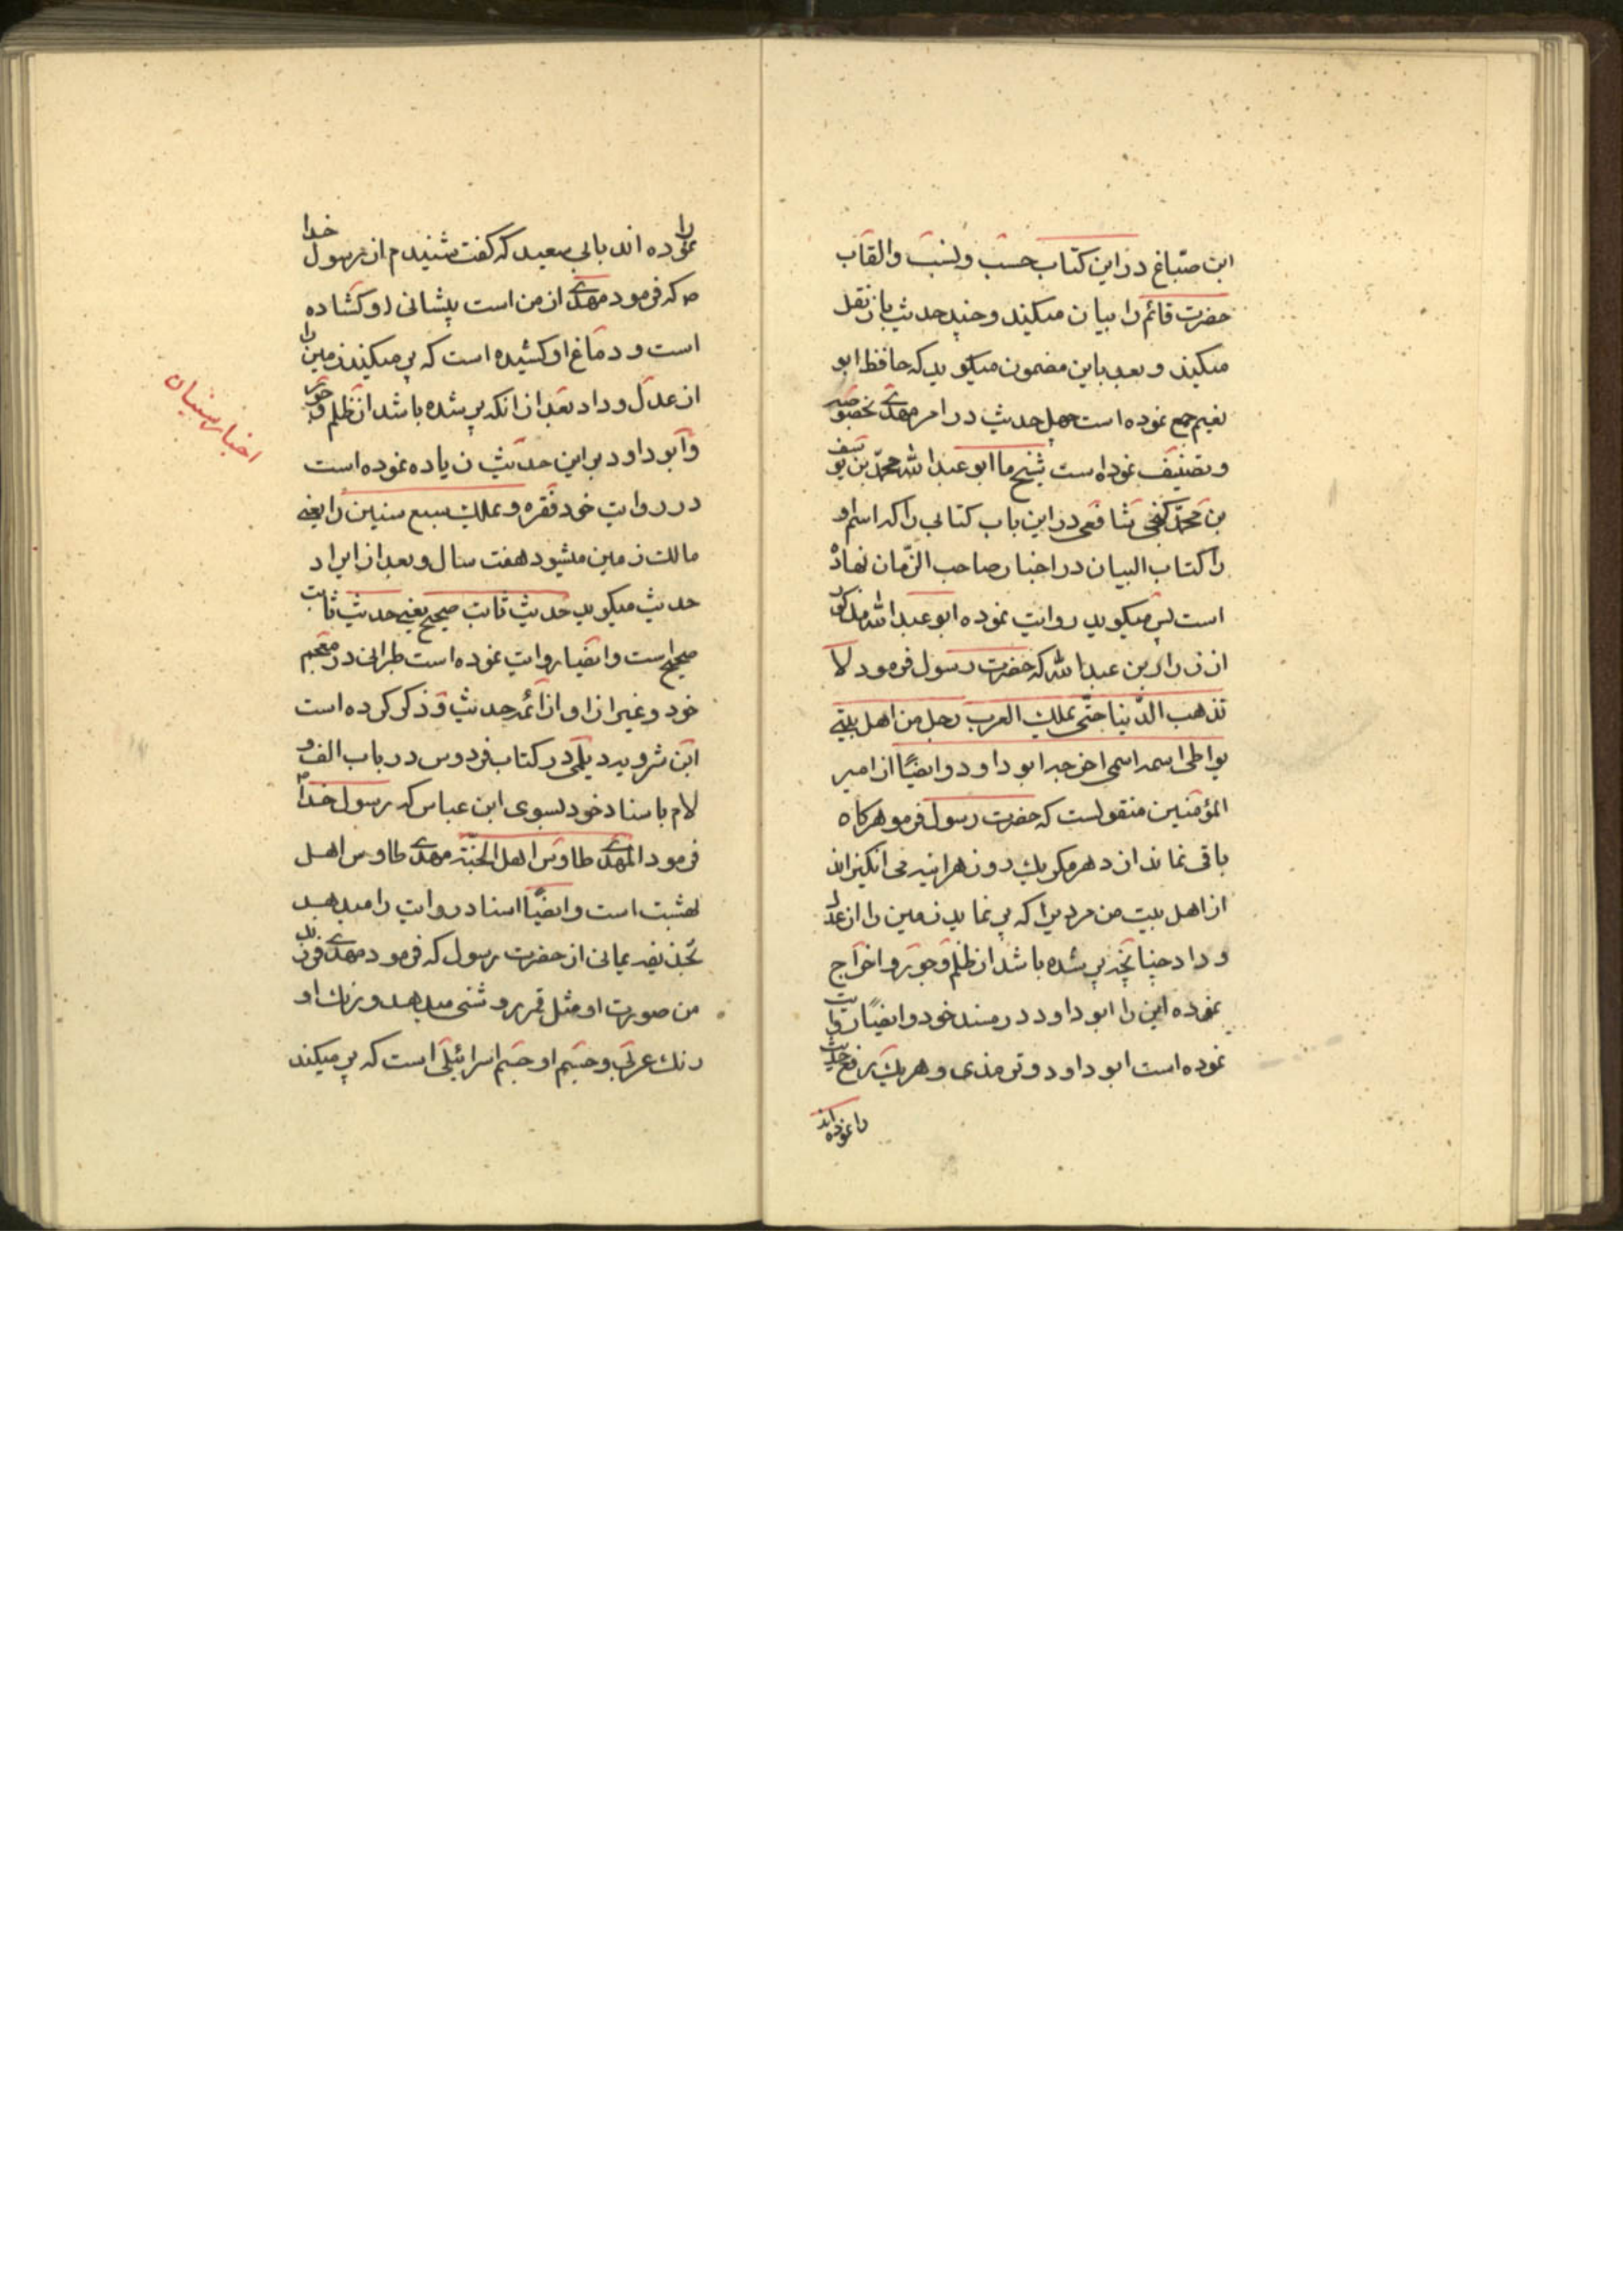 ابن صباغ در این کتاب حسب و نسب و القاب
حضرت قائم را بیان میکند و چند حدیث باز نقل
میکند و بعد باین مضمون میکوید که حافظ ابو
نعیم جمع نموده است چهل حدیث در امر مهدی بخصوصه
و تصنیف نموده است شیخ ما ابو عبد الله محمد بن یوسف
بن محمد کنجی شافعی در این باب کتابی را که اسم او
را کتاب البیان در اخبار صاحب الزمان نهاده
است پس میکوید روایت نموده ابو عبد الله مذکور
از زر بن عبد الله که حضرت رسول فرمود لا
تذهب الدنیا حتی یملک العرب رجل من اهل بیتی
یواطی اسمه اسمی اخرجه ابو داود و ایضا از امیر
المؤمنین منقولست که حضرت رسول فرمو هرکاه
باقی نماند از دهر مکر یک روز هراینه می انکیزاند
از اهل بیت من مردیرا که پر نماید زمین را از عدل
و داد چنانچه پر شده باشد از ظلم و جور و اخراج
نموده این را ابو داود در مسند خود و ایضا روایت
نموده است ابو داود و ترمذی و هر یک رفع حدیث
را نموده اند
را نموده اند بابی سعید که کفت شنیدم از رسول خدا
ص که فرمود مهدی از من است پیشانی او کشاده
است و دماغ او کشیده است که پر میکند زمین را
از عدل و داد بعد از انکه پر شده باشد از ظلم و جور
و ابو داود بر این حدیث زیاده نموده است
در روایت خود فقره و یملک سبع سنین را یعنی
مالک زمین میشود هفت سال و بعد از ایراد
حدیث میکوید حدیث ثابت صحیح یعنی حدیث ثابت
صحیح است و ایضا روایت نموده است طبرانی در معجم
خود و غیر از او از ائمه حدیث و ذکر کرده است
ابن شرویه دیلمی در کتاب فردوس در باب الف و
لام باسناد خود بسوی ابن عباس که رسول خدا ص
فرمود المهدی طاوس اهل الجنة مهدی طاوس اهل
بهشت است و ایضا اسناد روایت را میدهد
بحذیفه یمانی از حضرت رسول که فرمود مهدی فرزند
من صورت او مثل قمر روشنی میدهد و رنك او
رنك عربی و جسم او جسم اسرائیلی است که پر میکند
اخبار سنیان